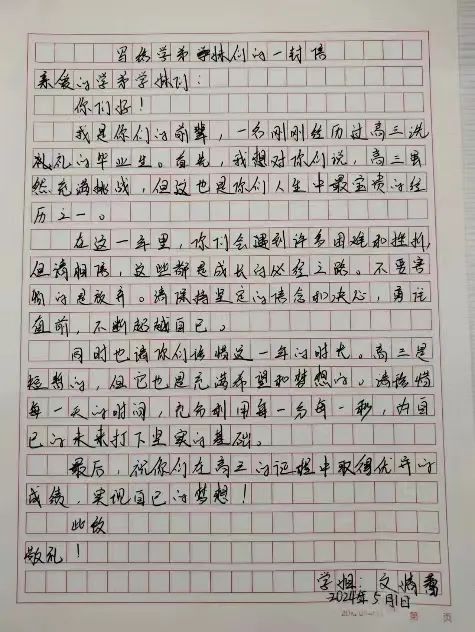 写给学弟学妹们的一封信
亲爱的学弟学妹们：
你们好！
我是你们的前辈，一名刚刚经历过高三洗
礼礼的毕业生。首先，我想对你们说，高三虽
然充满挑战，但这也是你们人生中最宝贵的经
历之一。
在这一年里，你们会遇到许多困难和挫折，
但请相信，这些都是成长的必经之路。不要害
怕的是放弃。请保持坚定的信念和决心，勇往
直前，不断超越自己。
同时也请你们珍惜这一年的时光。高三是
短暂的，但它也是充满希望和梦想的。请珍惜
每一天的时间，充分利用每一分每一秒，为自
己的未来打下坚实的基础。
最后，祝你们在高三的征程中取得优异的
成绩，实现自己的梦想！
此致
敬礼！
学姐：文
2024年5月1日
第 页